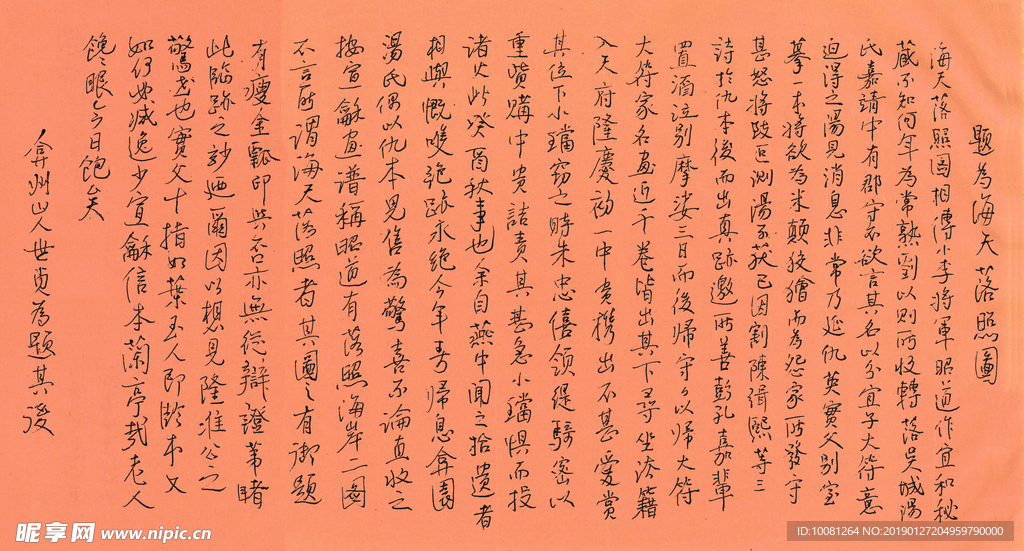 題為海天落照圖
海天落照圖相傳小李將軍昭道作宜和秘
藏不知何年為常熟劉以則所收轉落吳城湯
氏嘉靖中有郡守不欲言其名以分宜子大符意
迫得之湯見消息非常乃延仇英實父別室
摹一本將欲為米顛狡獪而為怨家所發守
甚怒將致叵測湯不获已因割陳緝熙等三
詩於仇本後而出真跡邀所善彭孔嘉輩
置酒泣別摩娑三日而後歸守守以歸大符
大符家名畫近千卷皆出其下尋坐法籍
入天府隆慶初一中贵攜出不甚愛賞
其位下小璫窃之時朱忠僖領缇騎密以
重貲購中贵詰責其甚急小璫惧而投
诸火此癸酉秋事也余自燕中聞之拾遺者
相與慨嘆絕跡永絕今年春歸息弇園
湯氏偶以仇本見售為驚喜不論直收之
按宣龢畫譜稱昭道有落照海岸二圖
不言所謂海天落照者其圖之有御題
有瘦金瓢印與否亦無從辯證第睹
此臨跡之妙迺爾因以想見隆准公之
驚世也實父十指如葉玉人即臨本又
如何必减逸少宣龢信本蘭亭哉老人
饞眼今日飽矣
弇州山人世贞為題其後
昵享网 www.nipic.cn
ID:10081264 NO:20190127204959790000